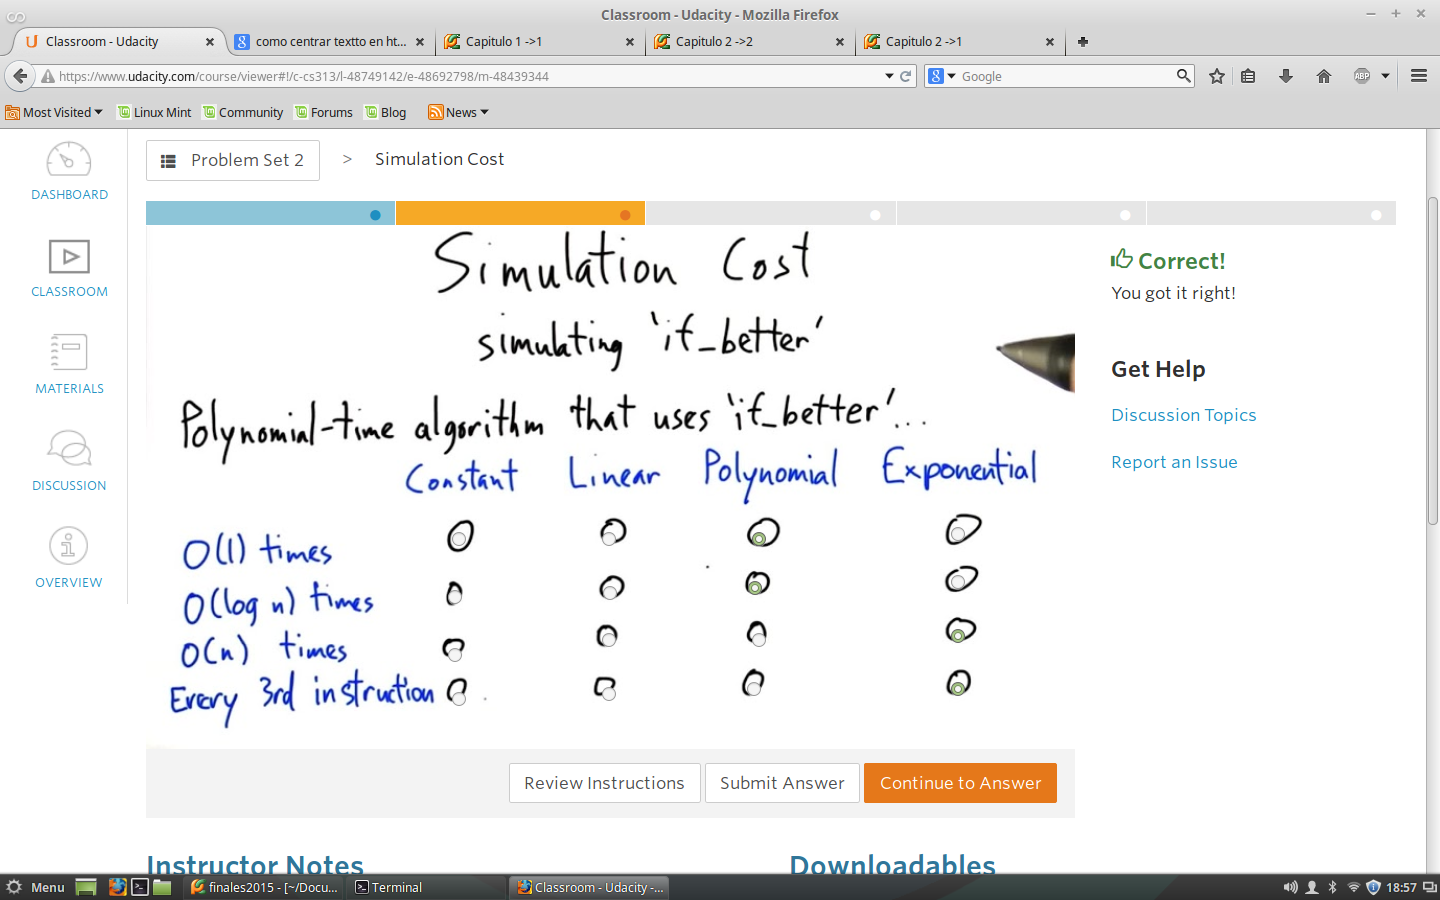 Classroom - Udacity - Mozilla Firefox
Classroom - Udacity
como centrar textto en ht...
Capitulo 1 ->1
Capitulo 2 ->2
Capitulo 2 ->1
https://www.udacity.com/course/viewer#!/c-cs313/l-48749142/e-48692798/m-48439344
Google
ABP
Most Visited
Linux Mint
Community
Forums
Blog
News
DASHBOARD
CLASSROOM
MATERIALS
DISCUSSION
OVERVIEW
Problem Set 2 > Simulation Cost
Simulation Cost
simulating 'if_better'
Polynomial-time algorithm that uses 'if_better'...
Constant Linear Polynomial Exponential
O(1) times
O(log n) times
O(n) times
Every 3rd instruction
Correct!
You got it right!
Get Help
Discussion Topics
Report an Issue
Review Instructions
Submit Answer
Continue to Answer
Instructor Notes
Downloadables
Menu
finales2015 - [~/Docu...
Terminal
Classroom - Udacity -...
18:57